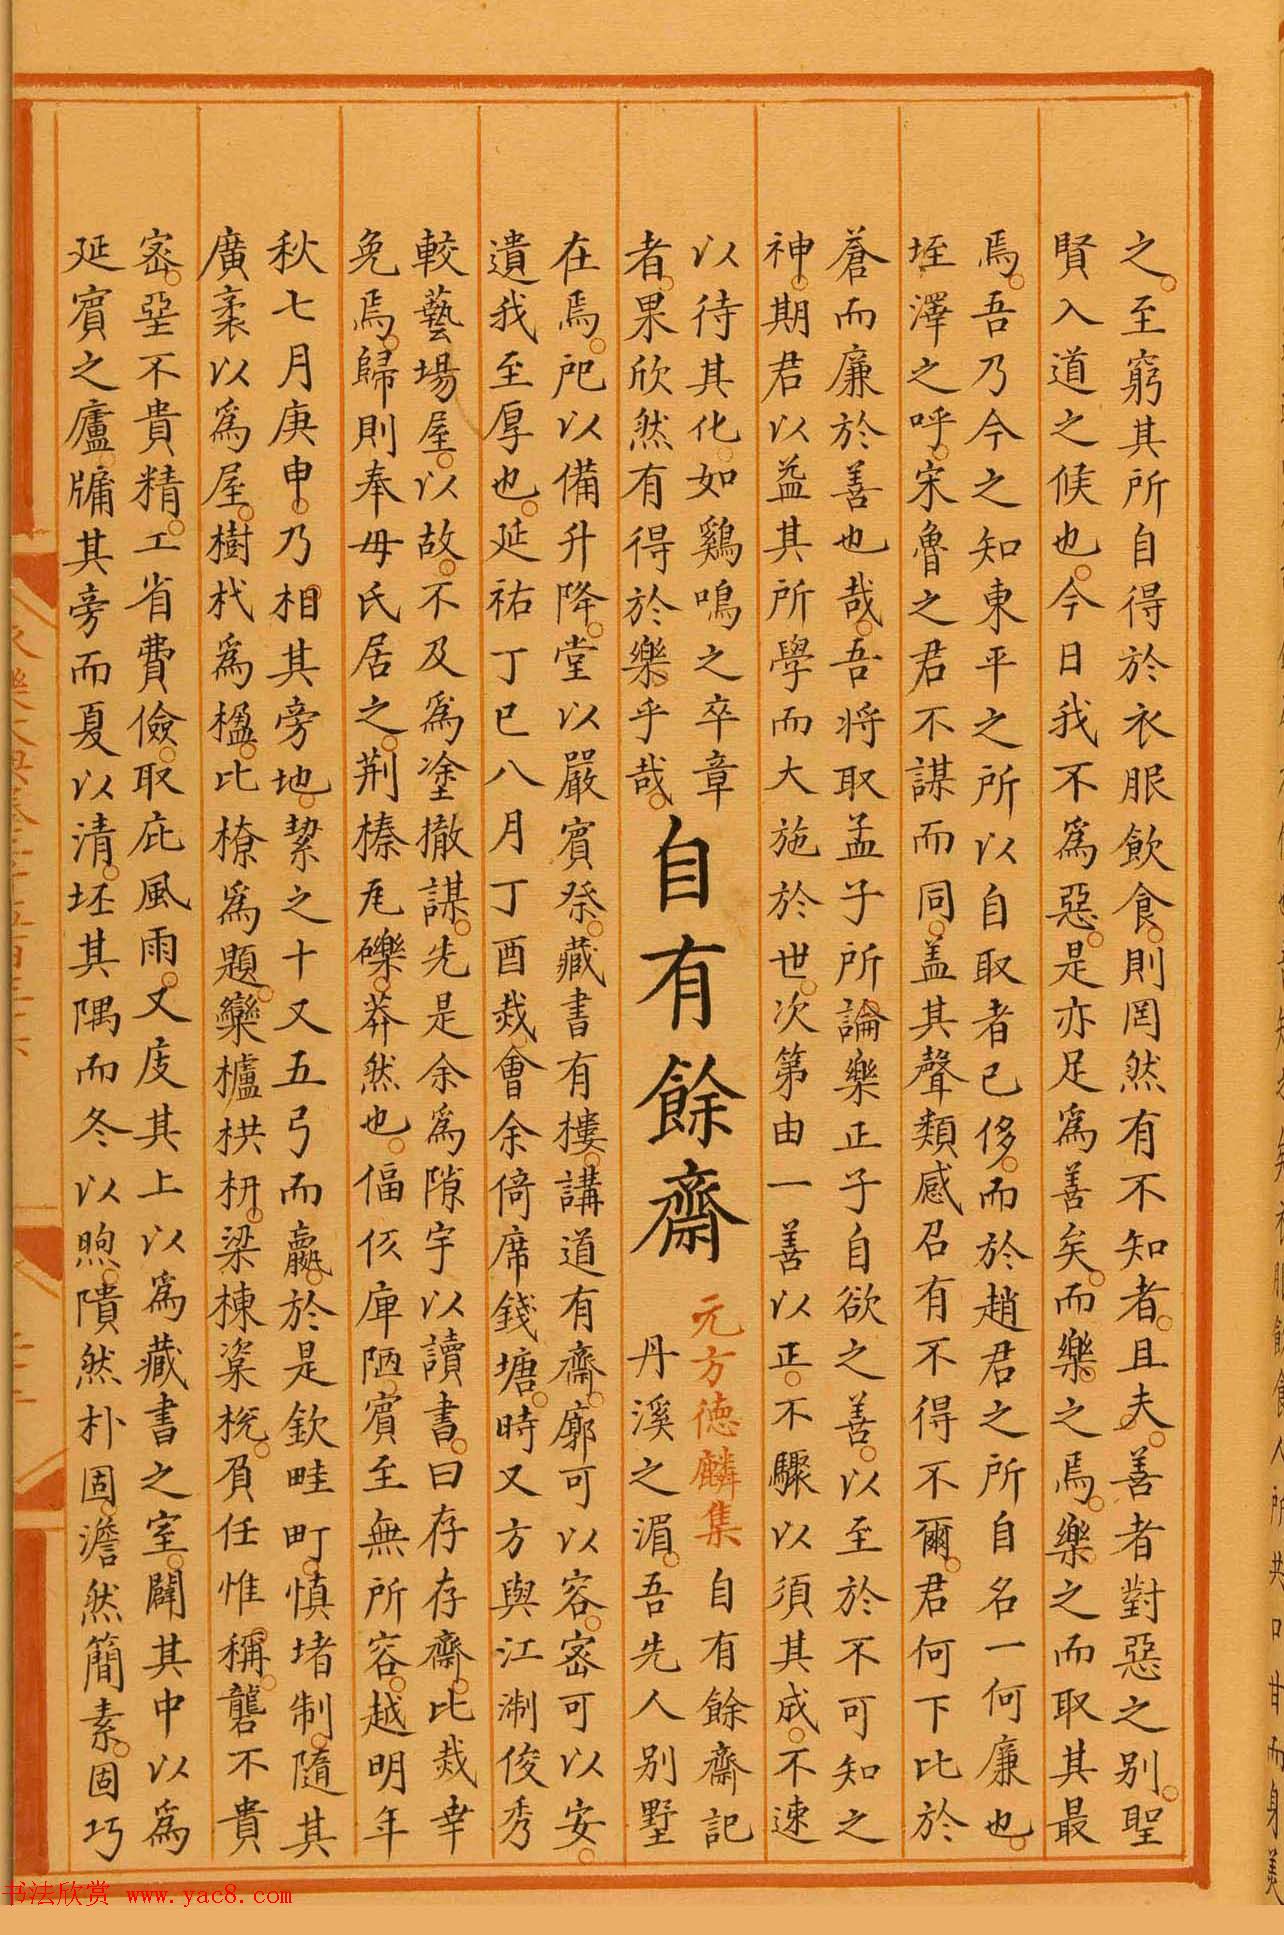 之。至窮其所自得於衣服飲食。則罔然有不知者。且夫善者對惡之別。聖
賢入道之候也。今日我不為惡。是亦足為善矣。而樂之焉。樂之而取其最
焉。吾乃今之知東平之所以自取者已侈。而於趙君之所自名一何廉也。
垤澤之呼。宋魯之君不謀而同。盖其聲類感召有不得不爾。君何下比於
蒼而廉於善也哉。吾將取孟子所論樂正子自欲之善。以至於不可知之
神。期君以益其所學而大施於世。次第由一善以正。不驟以須其成。不速
以待其化。如鷄鳴之卒章
者。果欣然有得於樂乎哉。
自有餘齋
元方德麟集
自有餘齋記
丹溪之湄。吾先人別墅
在焉。戺以備升降。堂以嚴賓祭。藏書有樓。講道有齋。廓可以容。宻可以安。
遺我至厚也。延祐丁巳八月丁酉烖。會余倚席錢塘。時又方與江淛俊秀
較藝場屋。以故。不及為塗撤謀。先是余為隙宇以讀書。曰存存齋。比烖幸
免焉。歸則奉母氏居之。荆榛瓦礫。莽然也。偪仄庳陋。賓至無所容。越明年
秋七月庚申。乃相其旁地。絜之十又五弓而羸。於是欽畦町。慎堵制。隨其
廣袤以為屋。樹杙為楹。比橑為題。欒櫨栱枅。梁棟楶梲。負任惟稱。礱不貴
宻。堊不貴精。工省費儉。取庇風雨。又庋其上以為藏書之室。闢其中以為
延賓之廬。牗其旁而夏以清。坯其隅而冬以煦。隤然朴固。澹然簡素。固巧
书法欣赏 www.yac8.com